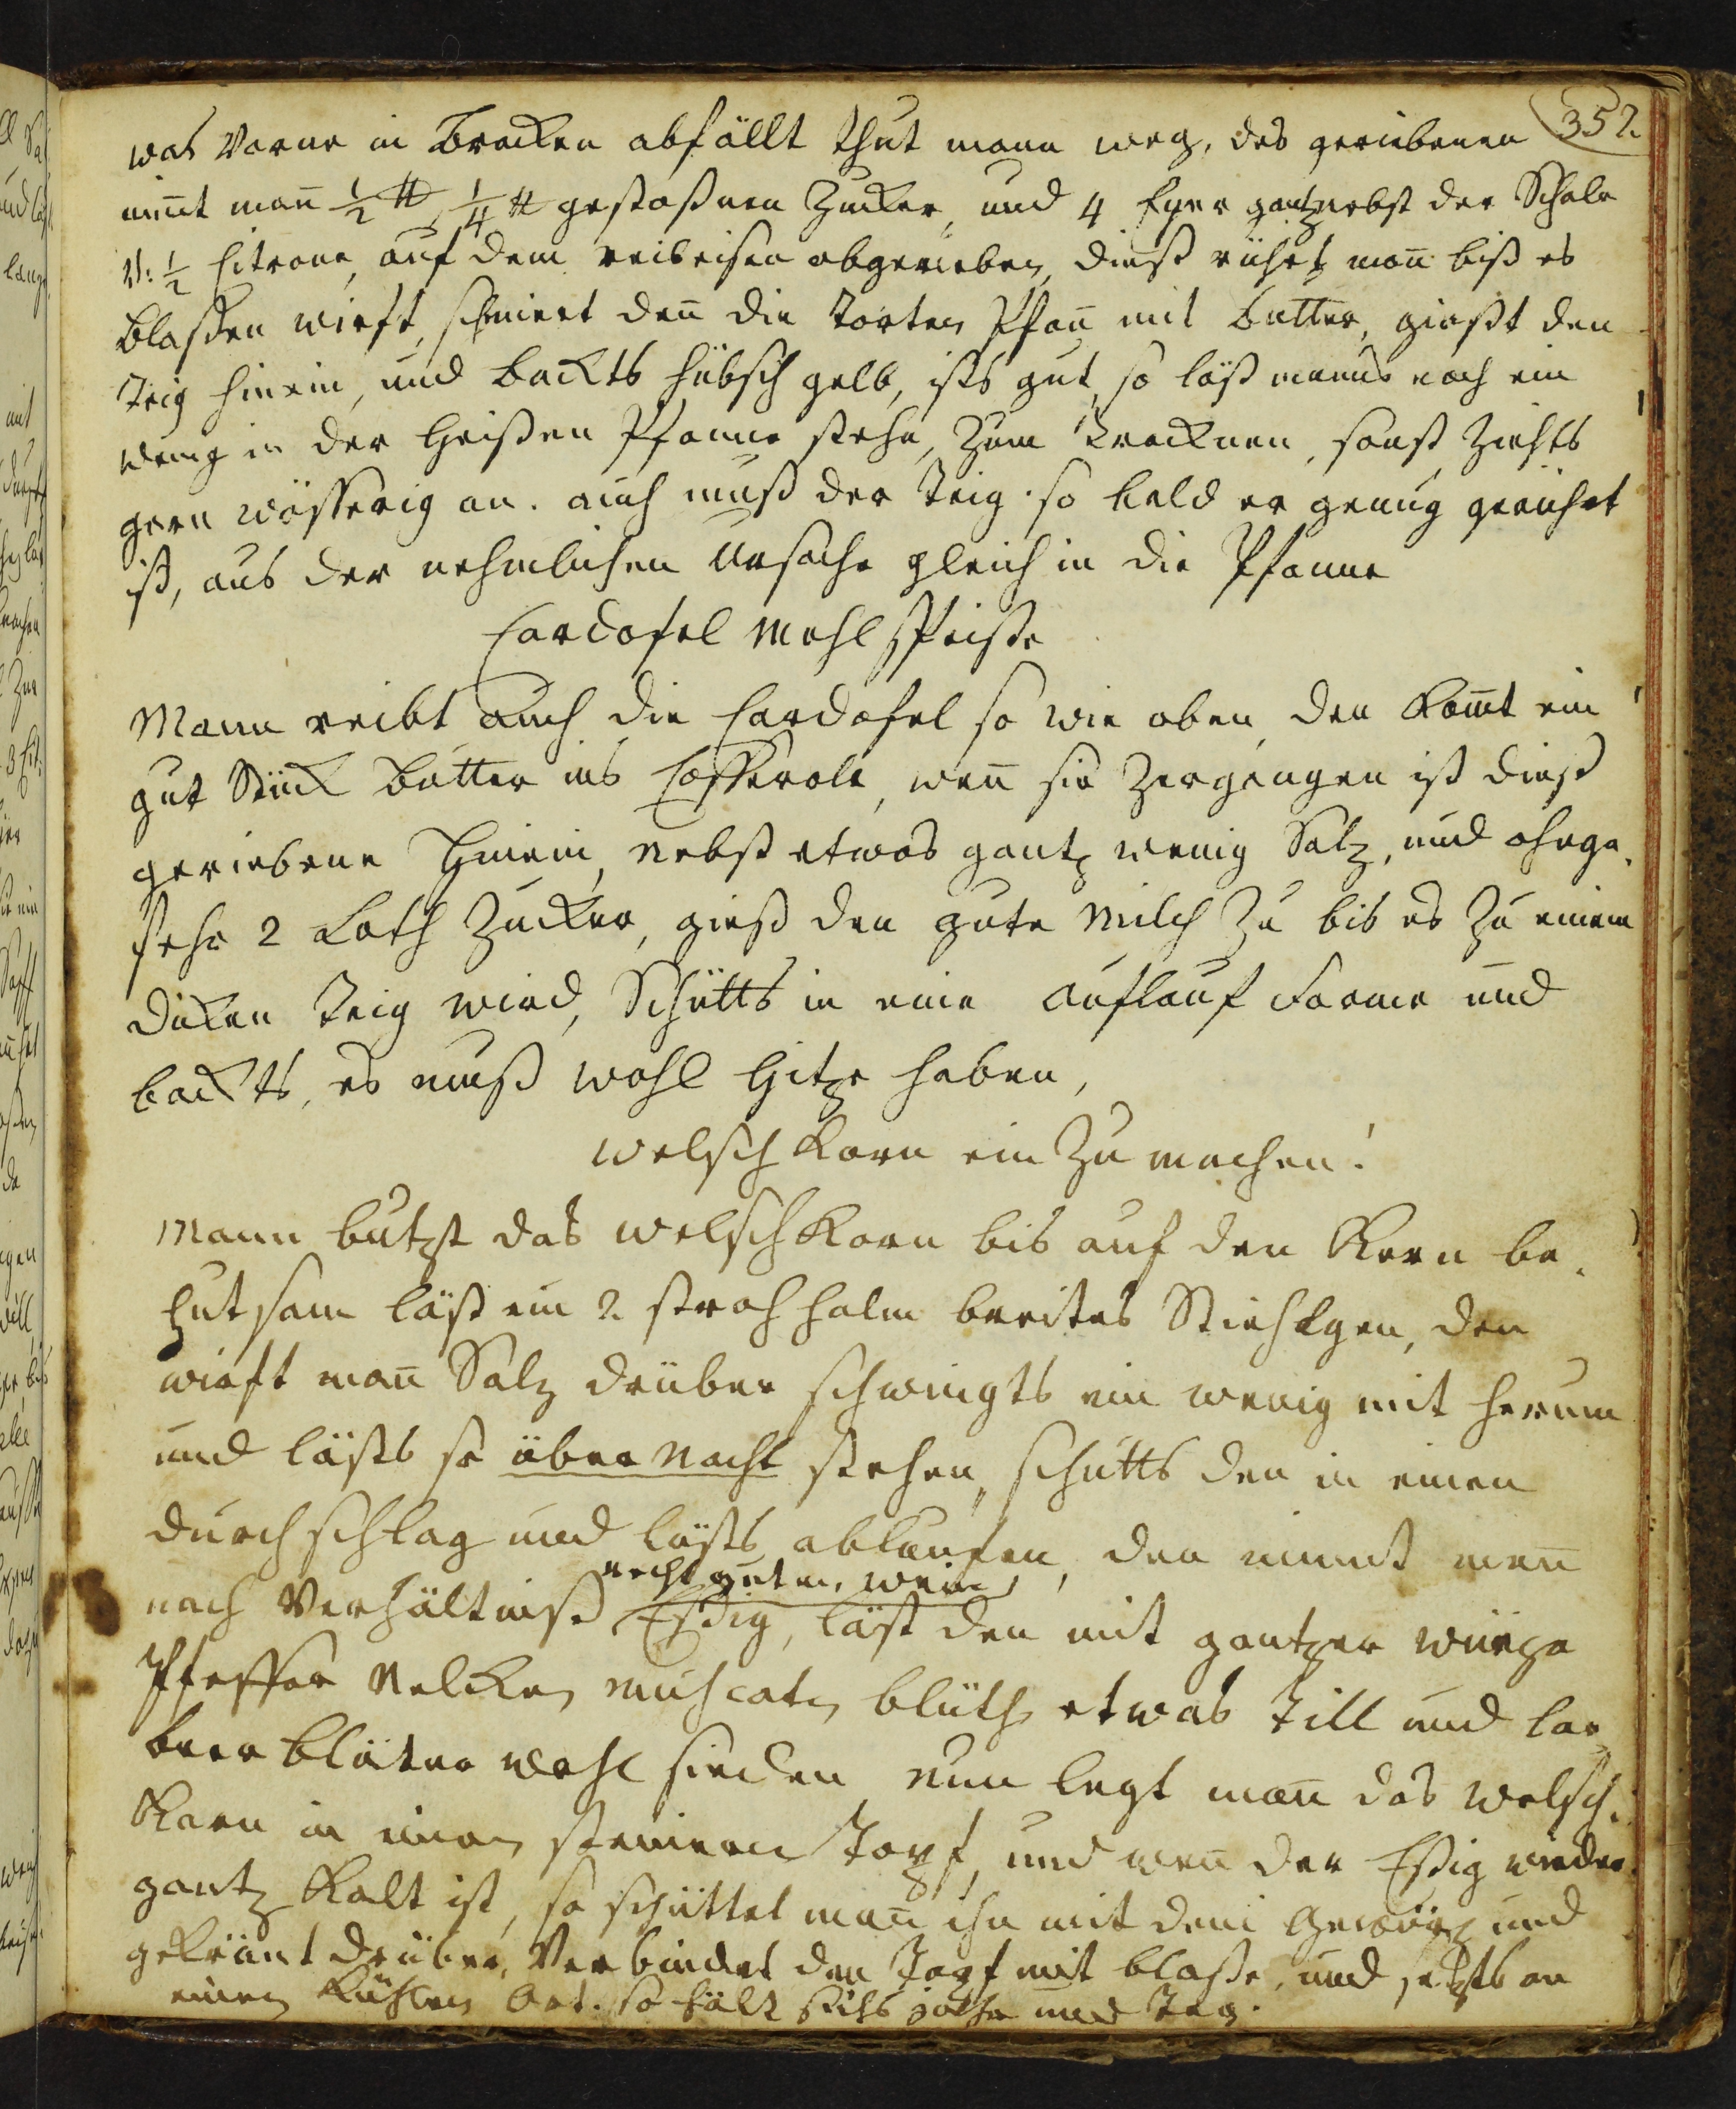 352.
was Vorne in Brocken abfällt thut mann weg, des geriebenen
nim̄t man̄ ½ ℔, ¼ ℔ gestoßnen Zucker, und 4 Eyer gantz nebst der Schale
v: ½ Citrone, auf dem reibeisen abgerieben, dießs rührt man̄ biß es
blaßen wirft, schmiert den̄ die torten Pfan̄ mit butter, giest den
teig hinein, und backts hübsch gelb, ists gut, so läst manns noch ein
wenig in der heißen Pfanne stehn, zum trocknen, sonst ziehts
gern wässerig an. auch muß der teig so bald er genug gerührt
ist, aus der nehmlichen Ursache gleich in die Pfanne
Cardofel Mehlspeiße
Mann reibt auch die Cardofel so wie oben, den kom̄t ein
gut Stück butter ins Casserole, wen̄ sie zergangen ist dieß
geriebene hinein, nebst etwas gantz wenig Salz, und ohnge-
fehr 2 Loth Zucker, gieß den gute Milch zu bis es zu einem
dicken teig wird, Schütts in eine Auflauf Forme und
backts, es muß wohl Hitze haben,
Welsch Korn ein zu machen!
Mann butzt das welsch Korn bis auf den Kern be-
hutsam läst ein 2 strohhalm breites Stiehlgen, den
wirft man̄ Salz drüber schwingts ein wenig mit herum
und läßts so über Nacht stehen, schütts den in einen
durchschlag und läßts ablaufen, den nimmt man̄
recht guten, wein
nach Verhältniß Eßig, läst den mit gantzer würze
Pfeffer Nelcken muscaten blüth etwas Till und lor-
beer bläter wohl sieden nun legt man̄ das Welsch-
Korn in einen steinern Topf, und wen̄ der Eßig wieder
gantz kalt ist, so schüttet man̄ ihn mit dem Gewürz und
gekräut drüber, Verbindet den Topf mit blaße, und setzts an
einen kühlen Ort. so hält sichs jahr und Tag.